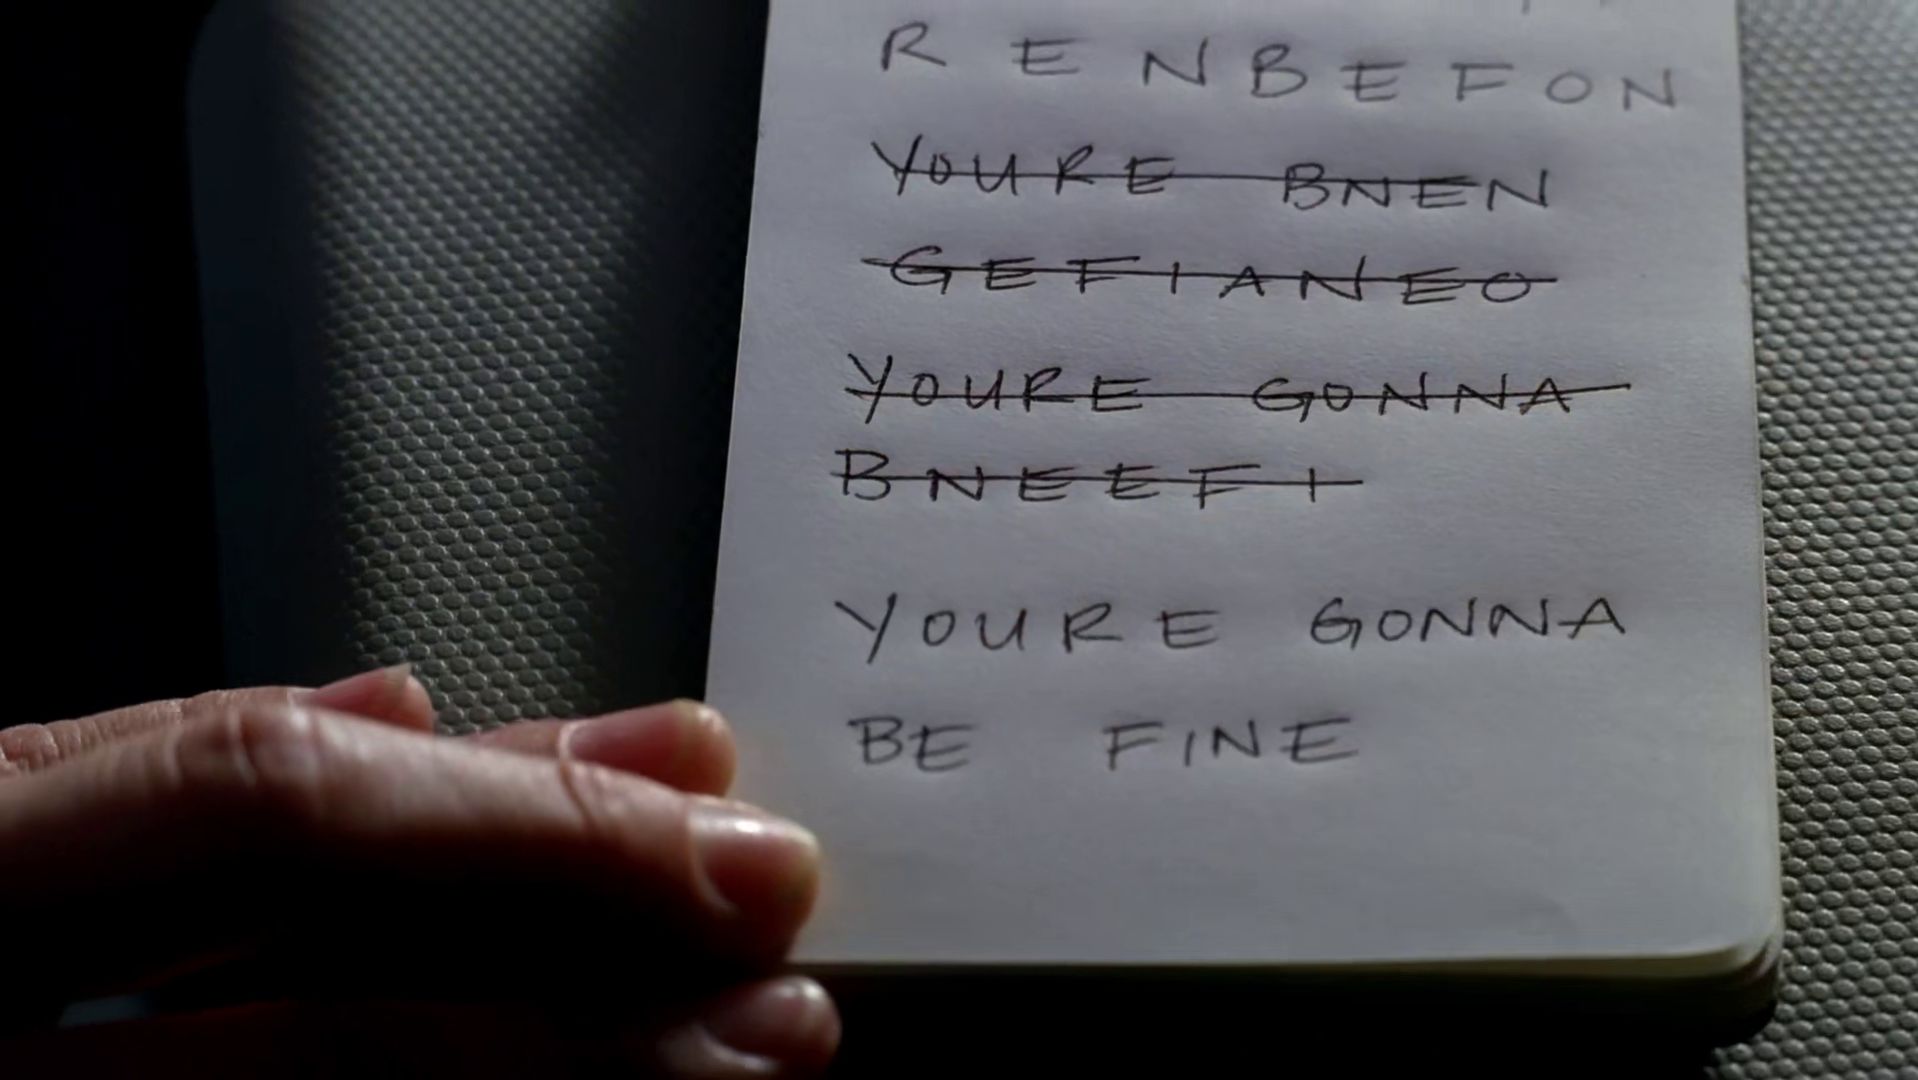 RENBEFON
YOURE BNEN
GEFIANEO
YOURE GONNA
BNEEFI
YOURE GONNA
BE FINE